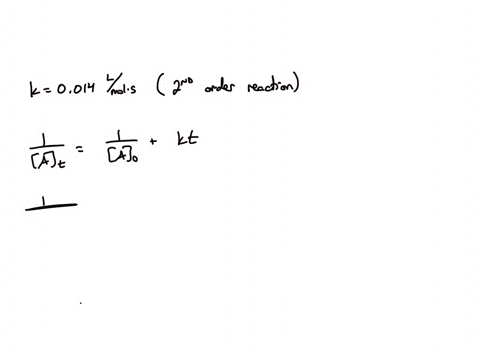 k = 0.014 L/mol·s (2ND order reaction)
1/[A]t = 1/[A]0 + kt
1